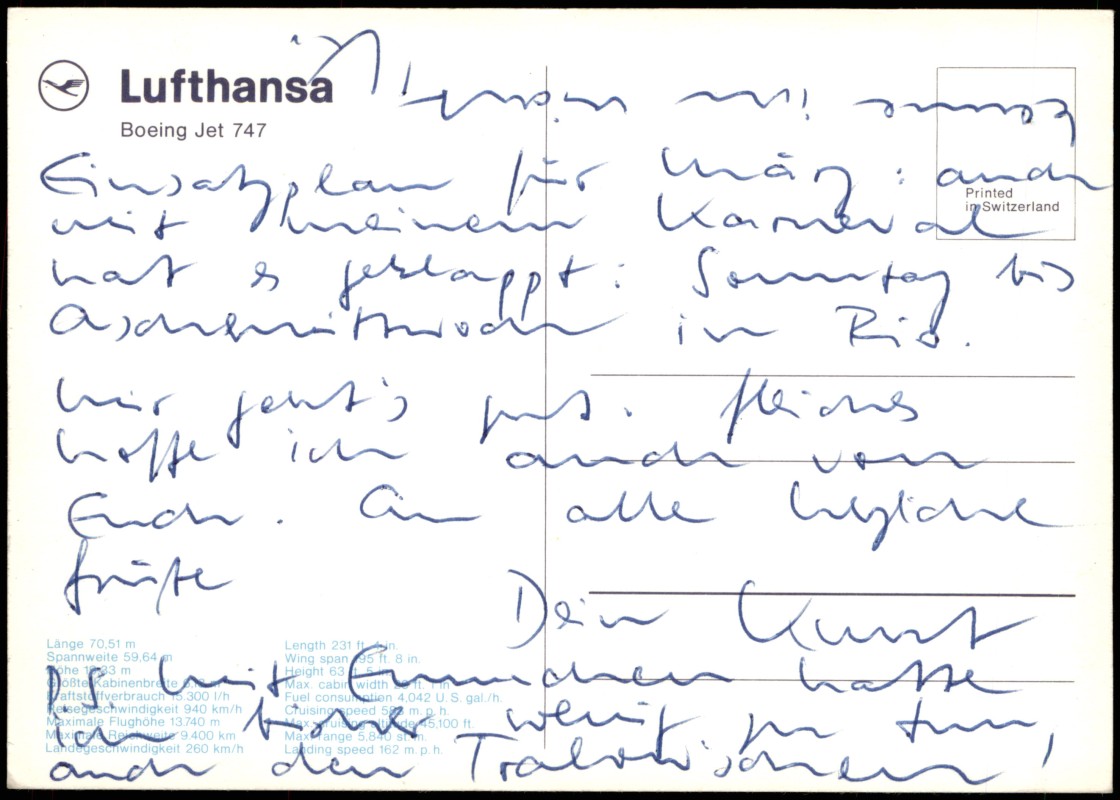 Lufthansa
Boeing Jet 747
Printed
in Switzerland
Einsatzplan für März: auch
mit meinem Karneval
hat es geklappt: Sonntag bis
Aschermittwoch in Rio.
Mir geht's gut. Gleiches
hoffe ich auch von
Euch. An alle herzliche
Grüße
Dein
P.S. Mit hatte
ich bisher wenig zu tun,
auch den
Länge 70,51 m
Spannweite 59,64 m
Höhe m
Größte Kabinenbreite
Kraftstoffverbrauch 15.300 l/h
Reisegeschwindigkeit 940 km/h
Maximale Flughöhe 13.740 m
Maximale Reichweite 9.400 km
Landegeschwindigkeit 260 km/h
Length 231 ft. in.
Wing span 195 ft. 8 in.
Height 63 ft. in.
Max. cabin width ft. 1 in.
Fuel consumption 4,042 U.S. gal./h.
Cruising speed m.p.h.
Max. cruising altitude 45,100 ft.
Max. range 5,840 st.m.
Landing speed 162 m.p.h.